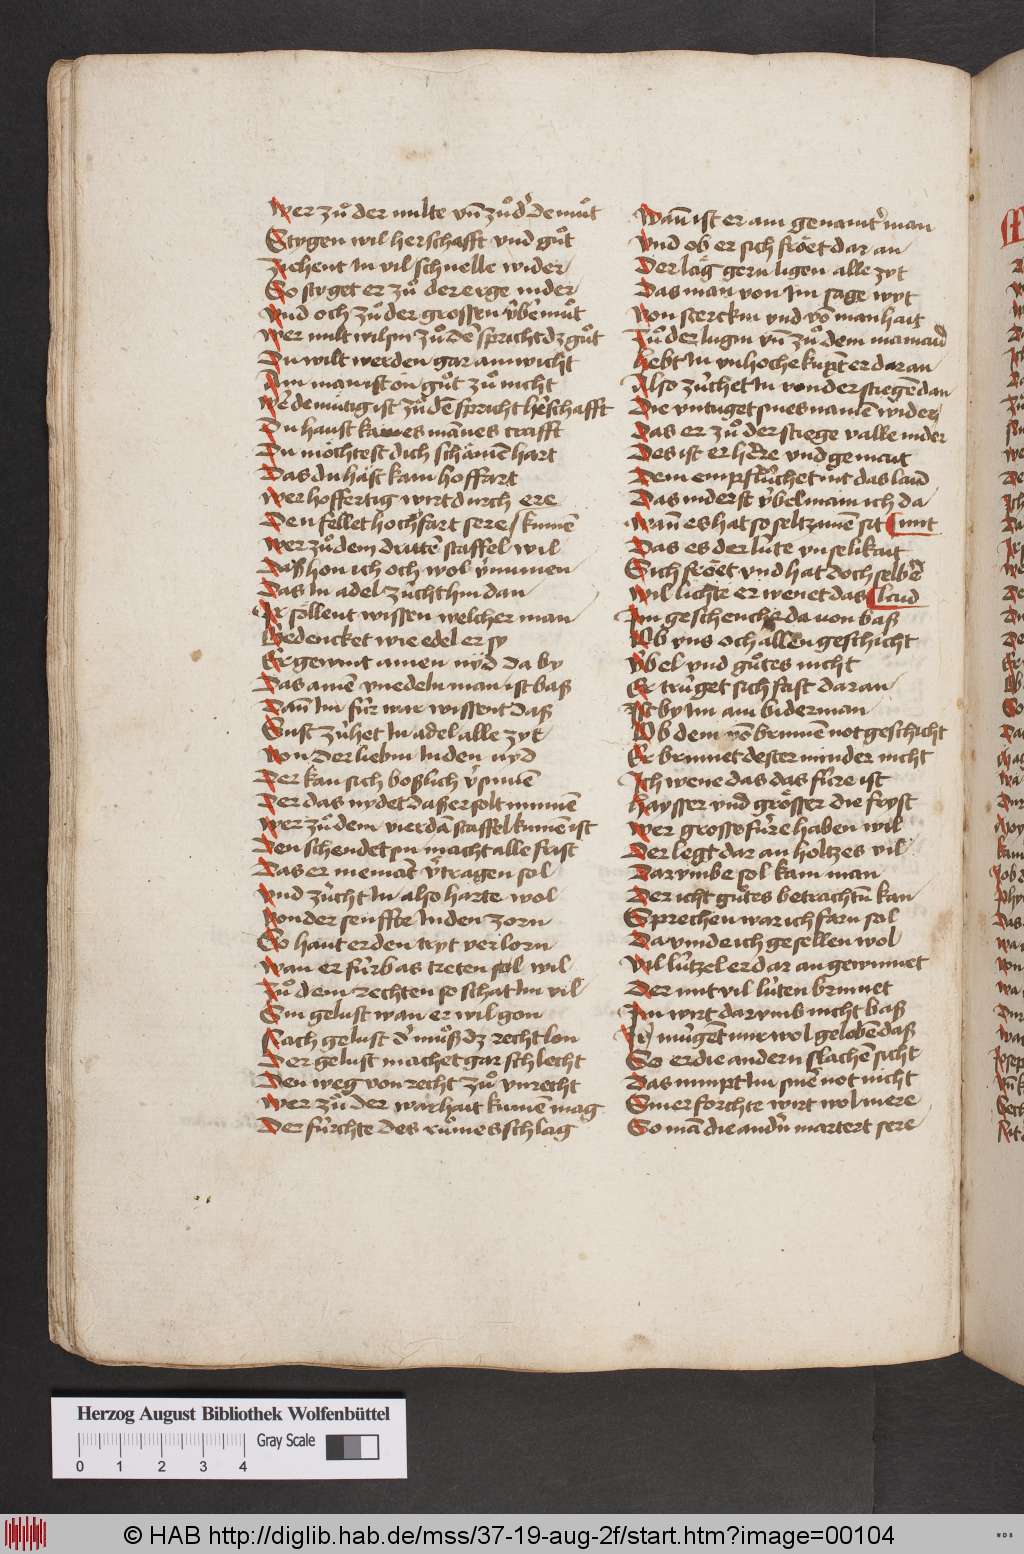 Wer zuͦ der milte vn̄ zuͦ d' demuͦt
Stygen wil herschafft vnd guͦt
Ziehent In vil schnelle wider
So styget er zuͦ der erge nider
Vnd och zuͦ der grossen v̈bermuͦt
Wer milt wil sin zuͦ dē spricht dz guͦt
Du wilt werden gar an wicht
Ain man ist on guͦt zuͦ nicht
Wer demütig ist zuͦ dē spricht herschafft
Du haust kaines mānes crafft
Du möchtest dich schämen hart
Das du häst kain hoffart
Wer hoffertig wirt durch ere
Den fellet hochfart sere kumē
Wer zuͦ dem dritten staffel wil
Das hon ich och wol v'numen
Das In adel züchthin dan
Ir söllent wissen welcher man
Bedencket wie edel er sy
Er gewint ainen nyd da by
Das ainē vnedeln man ist baß
Dan̄ Im für war wissent daß
Sust züchet In adel alle zyt
Von der liebin In den nyd
Der kan sich boßlich v'sinnē
Der das nydet daß er solt minnē
Wer zuͦ dem vierdn̄ staffel kumē ist
Den schendet sin macht alle frist
Das er niemāt v'tragen sol
Vnd zücht In also harte wol
Von der senffte In den zorn
So haut er den tryt verlorn
Wan er fürbas treten sol wil
Zuͦ dem rechten so schat Im vil
Sin gelust wan er wil gon
Nach gelust d' muͦß dz recht lon
Der gelust machet gar schlecht
Den weg von recht zuͦ vnrecht
Wer zuͦ der warhait kumē mag
Der fürchte des ruͦmes schlag
Wan̄ ist er ain genamt' man
Vnd ob er sich fröet dar an
Der lāg gern ligen alle zyt
Das man von Im sage wyt
Von sterckin vnd vō manhait
Zuͦ der lugin vn̄ zuͦ dem
hebt In vnhoche kupt er daran
Also züchet In von der stiegē dan
Die vntuget sines namē wider
Das er zuͦ der stiege valle nider
Des ist er herre vnd gemait
Dem empflüchet nit das laid
Das niderst v̈bel main ich da
Wan̄ es hat so seltzamē sit mit
Das es der lüte vnselikait
Sich fröet vnd hat doch selber
Wil lichte er wenet das laid
Im geschenche da von baß
Ob vns och allen geschicht
v̈bel vnd guͦtes nicht
Er trüget sich fast daran
Ist by Im ain biderman
Ob dem vō brinnē not geschicht
Er brinnet dester minder nicht
Ich wene das das füre ist
haysser vnd grösser die fryst
Wer grosse füre haben wil
Der legt dar an holtzes vil
Darymbe sol kain man
Der icht guͦtes betrachtn̄ kan
Sprechen war ich farn sol
Da vinde ich gesellen wol
Vil lützel er dar an gewinnet
Der mit vil lüten brinnet
Im wirt darymb nicht baß
Ir mügēt mir wol gelobē daß
So er die andern slachē sicht
Das nimpt Im sinē not nicht
Siner forchte wirt wol mere
So mā die andn̄ martert sere
Herzog August Bibliothek Wolfenbüttel
Gray Scale
0 1 2 3 4
© HAB http://diglib.hab.de/mss/37-19-aug-2f/start.htm?image=00104